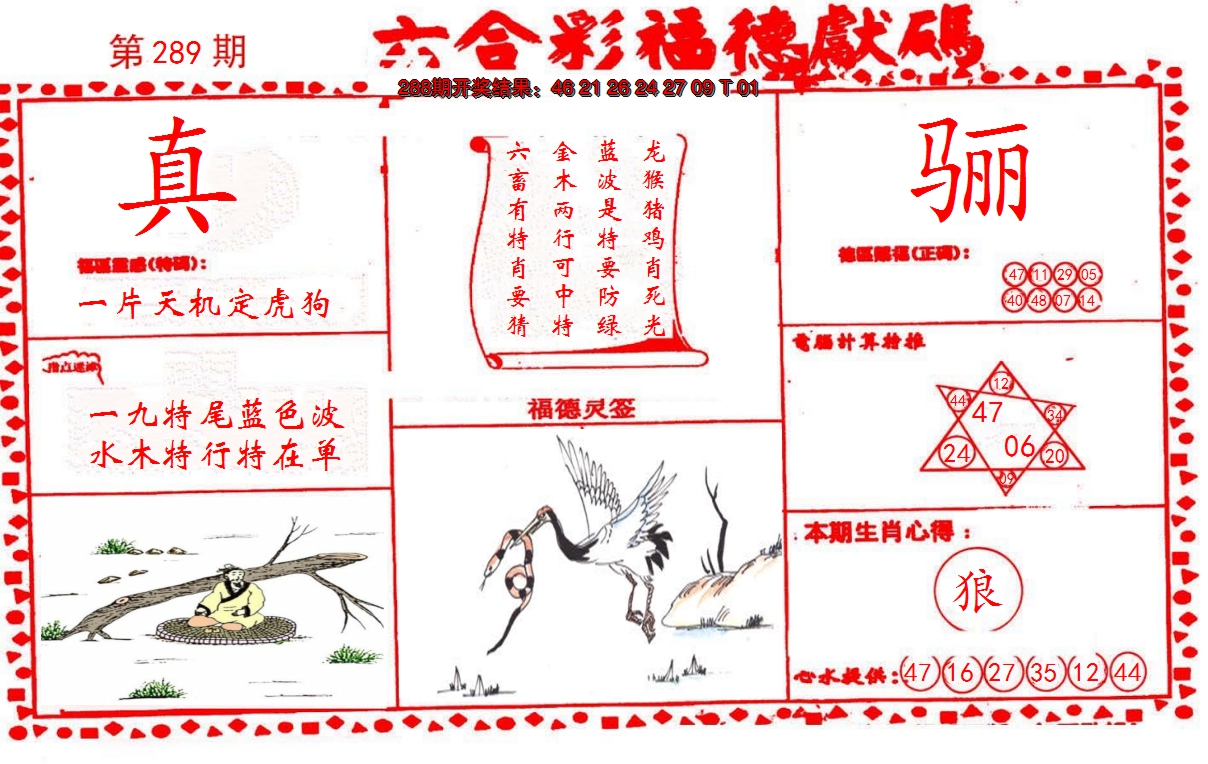 第 289 期
六合彩福德獻碼
288期开奖结果：46 21 26 24 27 09 T 01
真
一片天机定虎狗
一九特尾蓝色波
水木特行特在单
龙猴猪鸡肖死光
蓝波是特要防绿
金木两行可中特
六畜有特肖要猜
福德灵签
骊
德區賜福(正碼)：
47 11 29 05
40 48 07 14
電腦計算推
12
44 47 34
24 06 20
09
本期生肖心得：
狼
心水提供：47 16 27 35 12 44